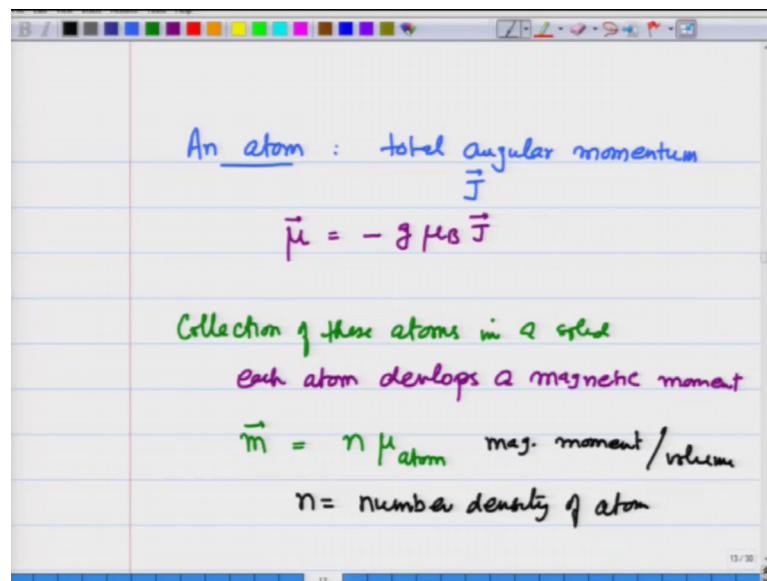 An atom : total angular momentum
J⃗
μ⃗ = - g μB J⃗
Collection of these atoms in a solid
each atom devlops a magnetic moment
m⃗ = n μatom mag. moment/volume
n = number density of atom
13/30
13